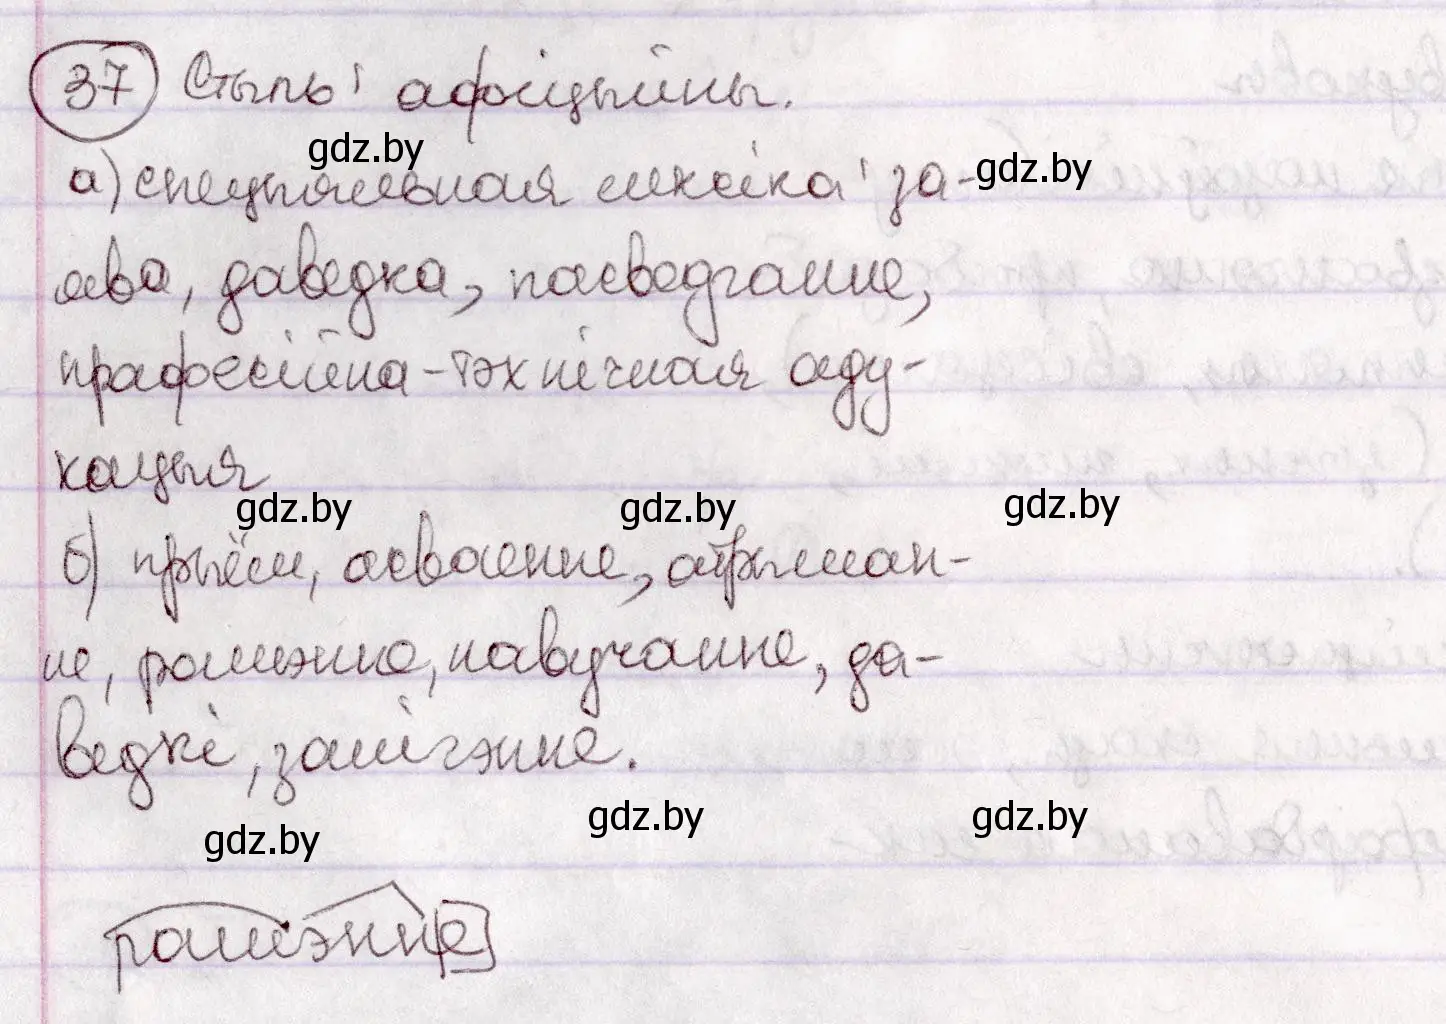 37 Стыль: афіцыйны.
gdz.by
а) спецыяльная лексіка: за- gdz.by
ява, даведка, пасведчанне,
прафесійна-тэхнічная аду-
кацыя
gdz.by gdz.by gdz.by
б) прыём, асваенне, атрыман-
не, рашэнне, навучанне, да-
ведкі, залічэнне.
gdz.by gdz.by gdz.by
рашэнне